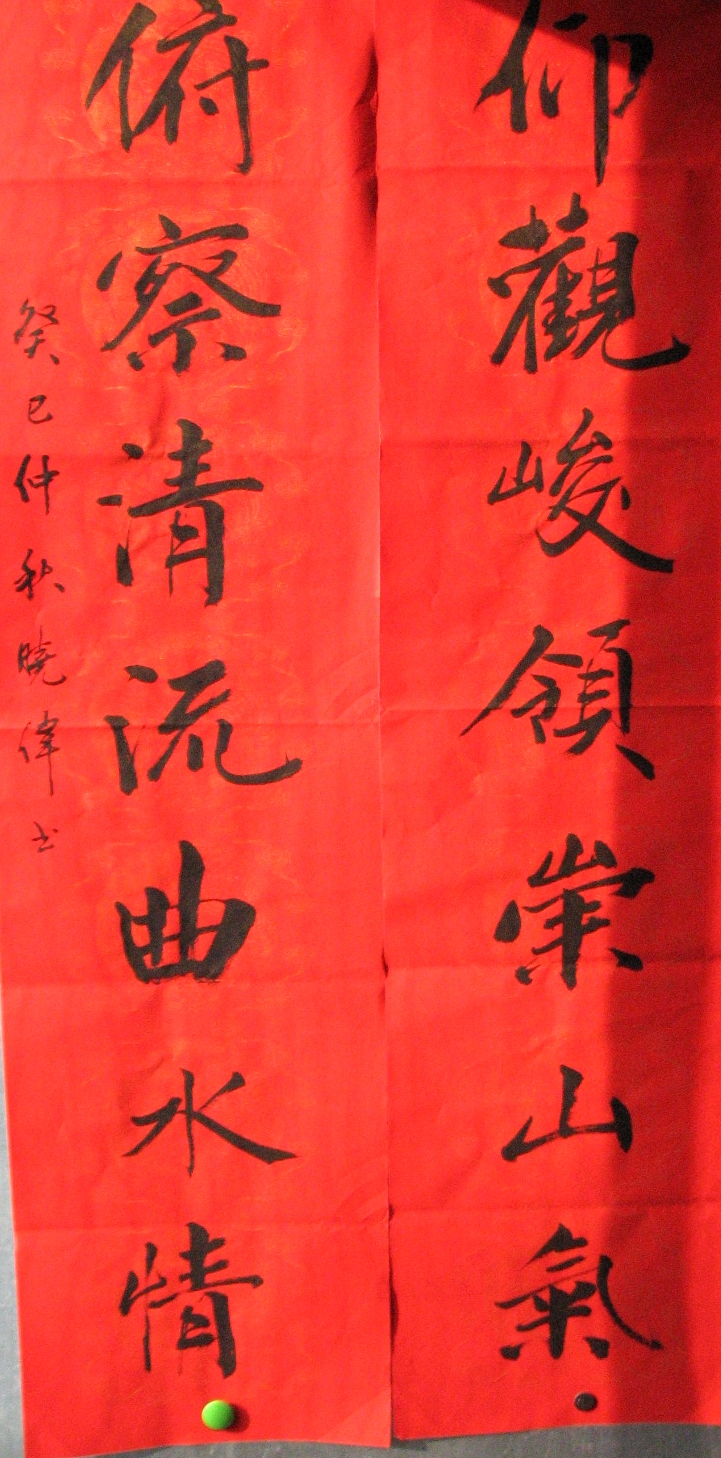 仰觀峻領崇山氣
俯察清流曲水情
癸巳仲秋曉偉书